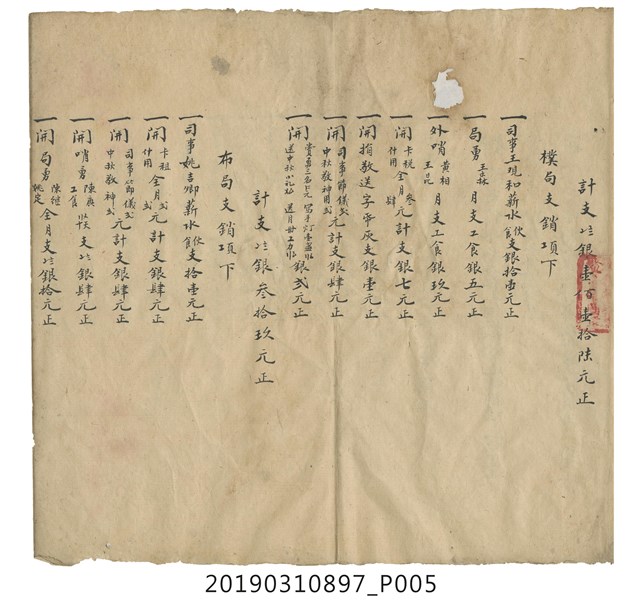 計支 銀壹百壹拾陸元正
樸局支銷項下
一司事王硯和薪水伙食支銀拾壹元正
一局勇 王森 月支工食銀五元正
一外哨 黃相 王昆 月支工食銀玖元正
一開 卡税 什用 仝月 叁 肆 元計支銀七元正
一開捐敬送字帋灰支銀壹元正
一開 司事節儀 中秋敬神用 元計支銀肆元正
一開 賞勇 銀弍元正
計支 銀叁拾玖元正
布局支銷項下
一司事姚吉卿薪水伙食支拾壹元正
一開 卡租 什用 仝月 元計支銀肆元正
一開 司事節儀 中秋敬神 元計支銀肆元正
一開哨勇 陳 工食 支 銀肆元正
一開局勇 陳 仝月支 銀拾元正
20190310897_P005